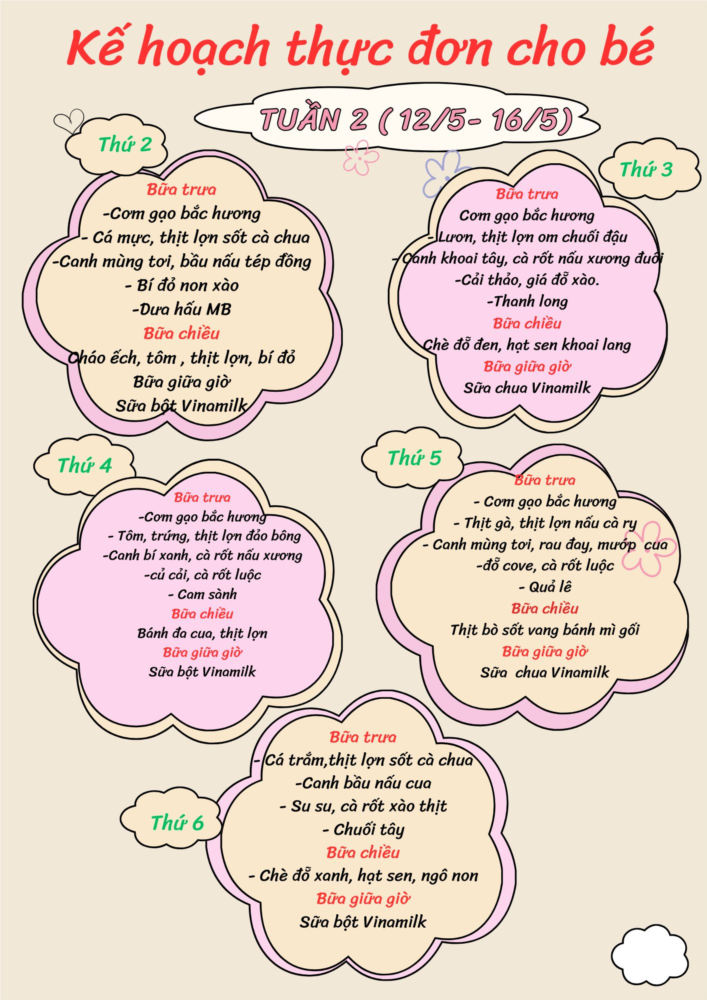 Kế hoạch thực đơn cho bé
TUẦN 2 ( 12/5- 16/5)
Thứ 2
Bữa trưa
-Cơm gạo bắc hương
- Cá mực, thịt lợn sốt cà chua
-Canh mùng tơi, bầu nấu tép đồng
- Bí đỏ non xào
-Dưa hấu MB
Bữa chiều
Cháo ếch, tôm , thịt lợn, bí đỏ
Bữa giữa giờ
Sữa bột Vinamilk
Thứ 3
Bữa trưa
Cơm gạo bắc hương
- Lươn, thịt lợn om chuối đậu
- Canh khoai tây, cà rốt nấu xương đuôi
-Cải thảo, giá đỗ xào.
-Thanh long
Bữa chiều
Chè đỗ đen, hạt sen khoai lang
Bữa giữa giờ
Sữa chua Vinamilk
Thứ 4
Bữa trưa
-Cơm gạo bắc hương
- Tôm, trứng, thịt lợn đảo bông
-Canh bí xanh, cà rốt nấu xương
-củ cải, cà rốt luộc
- Cam sành
Bữa chiều
Bánh đa cua, thịt lợn
Bữa giữa giờ
Sữa bột Vinamilk
Thứ 5
Bữa trưa
- Cơm gạo bắc hương
- Thịt gà, thịt lợn nấu cà ry
- Canh mùng tơi, rau đay, mướp cua
-đỗ cove, cà rốt luộc
- Quả lê
Bữa chiều
Thịt bò sốt vang bánh mì gối
Bữa giữa giờ
Sữa chua Vinamilk
Thứ 6
Bữa trưa
- Cá trắm,thịt lợn sốt cà chua
-Canh bầu nấu cua
- Su su, cà rốt xào thịt
- Chuối tây
Bữa chiều
- Chè đỗ xanh, hạt sen, ngô non
Bữa giữa giờ
Sữa bột Vinamilk